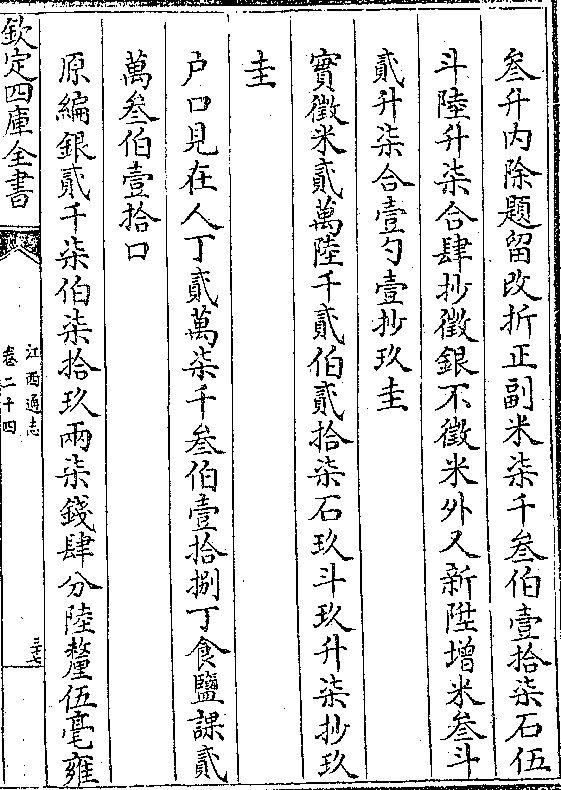 叁升内除題留改折正副米柒千叁伯壹拾柒石伍
斗陸升柒合肆抄徵銀不徵米外又新陞增米叁斗
貳升柒合壹勺壹抄玖圭
實徵米貳萬陸千貳伯貳拾柒石玖斗玖升柒抄玖
圭
户口見在人丁貳萬柒千叁伯壹拾捌丁食鹽課貳
萬叁伯壹拾口
原編銀貳千柒伯柒拾玖兩柒錢肆分陸釐伍毫雍
欽定四庫全書
江西通志
卷二十四
三十七